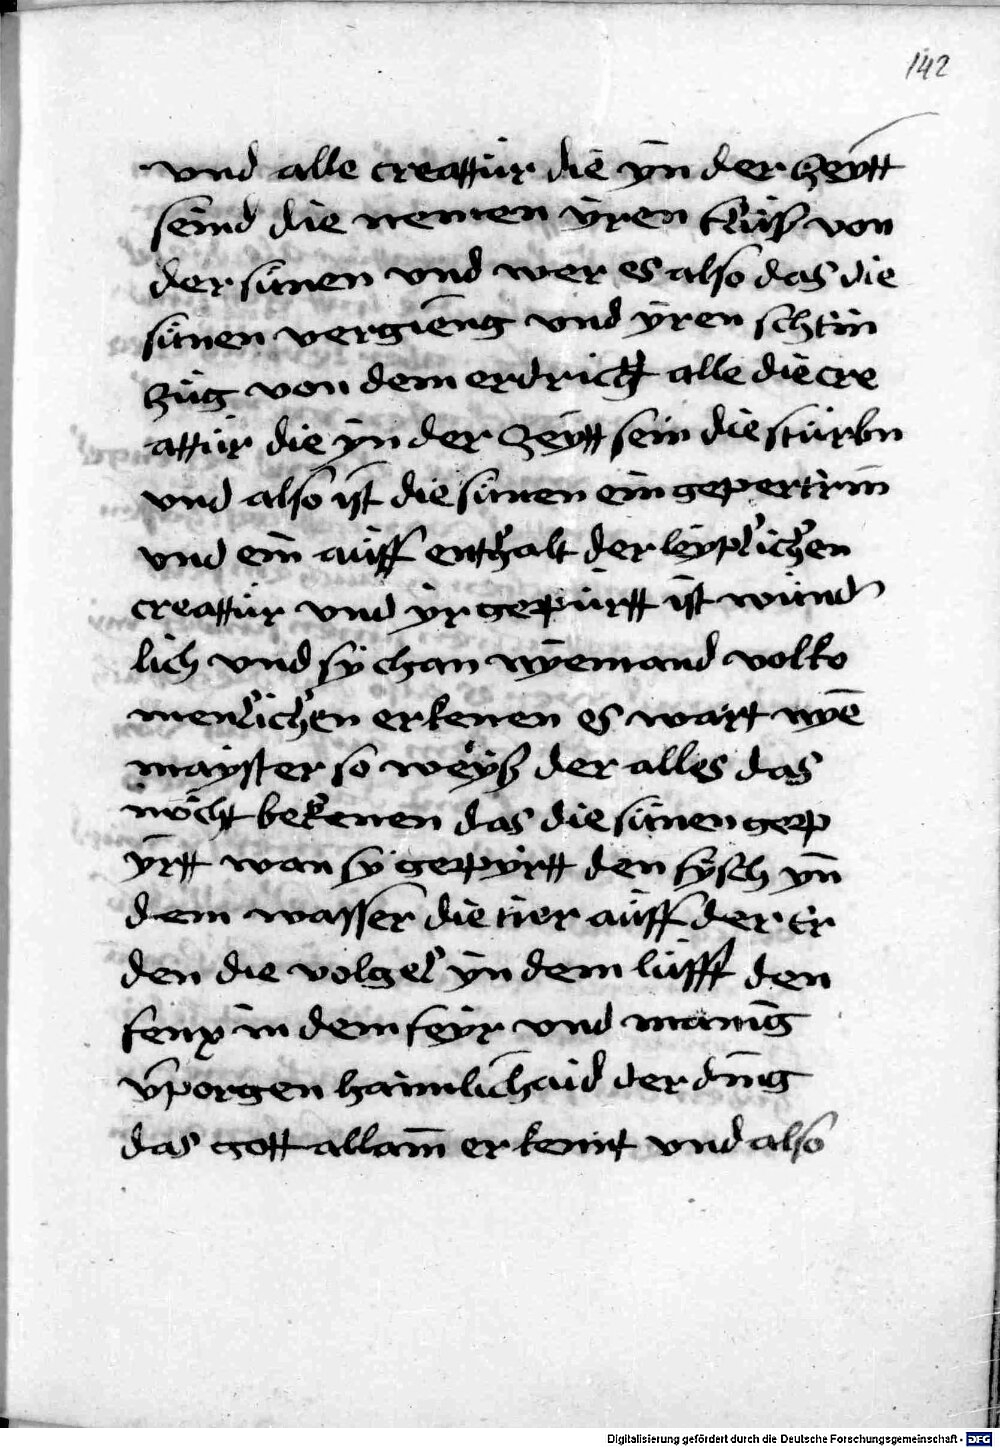 142
vnd alle creattür die ẏn der zeẏtt
seind die nemen ẏren flüß von
der sünen vnd wer es also das die
sünen vergieng vnd ẏren schein
züg von dem erdrich alle die cre
attür die ẏn der zeẏtt sein die stürbn
vnd also ist die sünen ein geperterin
vnd ein aüff enthalt der leẏplichen
creattür vnd ẏr gepürtt ist wünder
lich vnd sẏ chan nẏemand volko
menlichen erkenen es wart nẏe
maẏster so weẏß der alles das
möcht bekenen das die sünen gep
ẏrtt wan sẏ gepẏrtt den fẏsch ẏn
dem wasser die tier aüff der er
den die volgel ẏn dem lüfft den
fenx in dem feẏr vnd manig
v̄porgen haimlichaid der ding
das gott allain er kennt vnd also
Digitalisierung gefördert durch die Deutsche Forschungsgemeinschaft - DFG